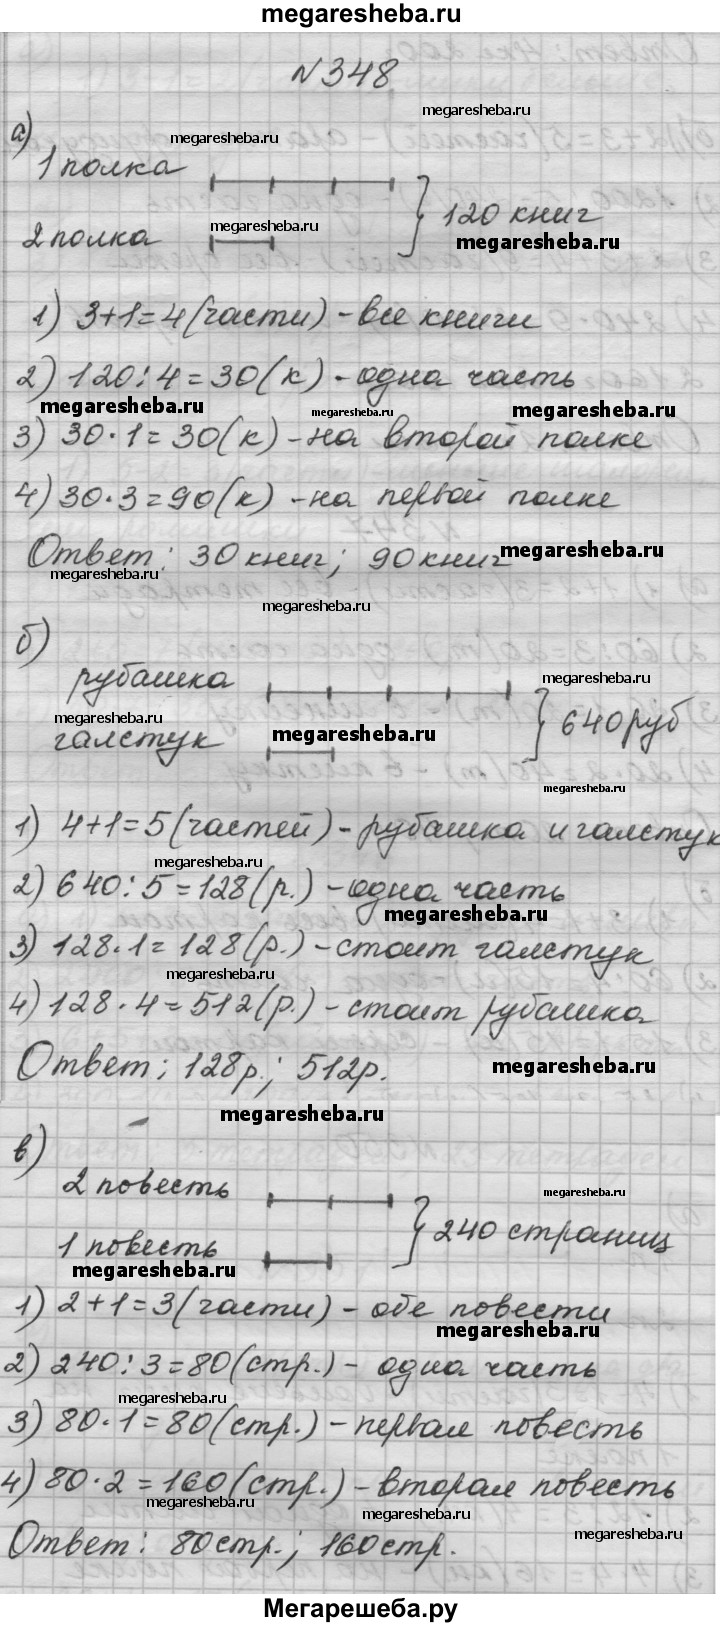 megaresheba.ru
N348
megaresheba.ru
а)
megaresheba.ru
1 полка
megaresheba.ru
120 книг
2 полка
megaresheba.ru
1) 3+1=4(части) - все книги
2) 120:4=30(к) - одна часть
megaresheba.ru megaresheba.ru megaresheba.ru
3) 30·1=30(к) - на второй полке
4) 30·3=90(к) - на первой полке
Ответ: 30 книг; 90 книг
megaresheba.ru
megaresheba.ru
megaresheba.ru
б)
рубашка
megaresheba.ru
megaresheba.ru
640 руб
галстук
megaresheba.ru
megaresheba.ru
1) 4+1=5(частей) - рубашка и галстук
megaresheba.ru
2) 640:5=128(р.) - одна часть
megaresheba.ru
3) 128·1=128(р.) - стоит галстук
megaresheba.ru
4) 128·4=512(р.) - стоит рубашка
Ответ: 128р.; 512р.
megaresheba.ru
megaresheba.ru
в)
2 повесть
megaresheba.ru
240 страниц
1 повесть
megaresheba.ru
1) 2+1=3(части) - обе повести
megaresheba.ru
2) 240:3=80(стр.) - одна часть
megaresheba.ru
3) 80·1=80(стр.) - первая повесть
4) 80·2=160(стр.) - вторая повесть
megaresheba.ru
megaresheba.ru
Ответ: 80стр.; 160стр.
megaresheba.ru
Мегарешеба.ру